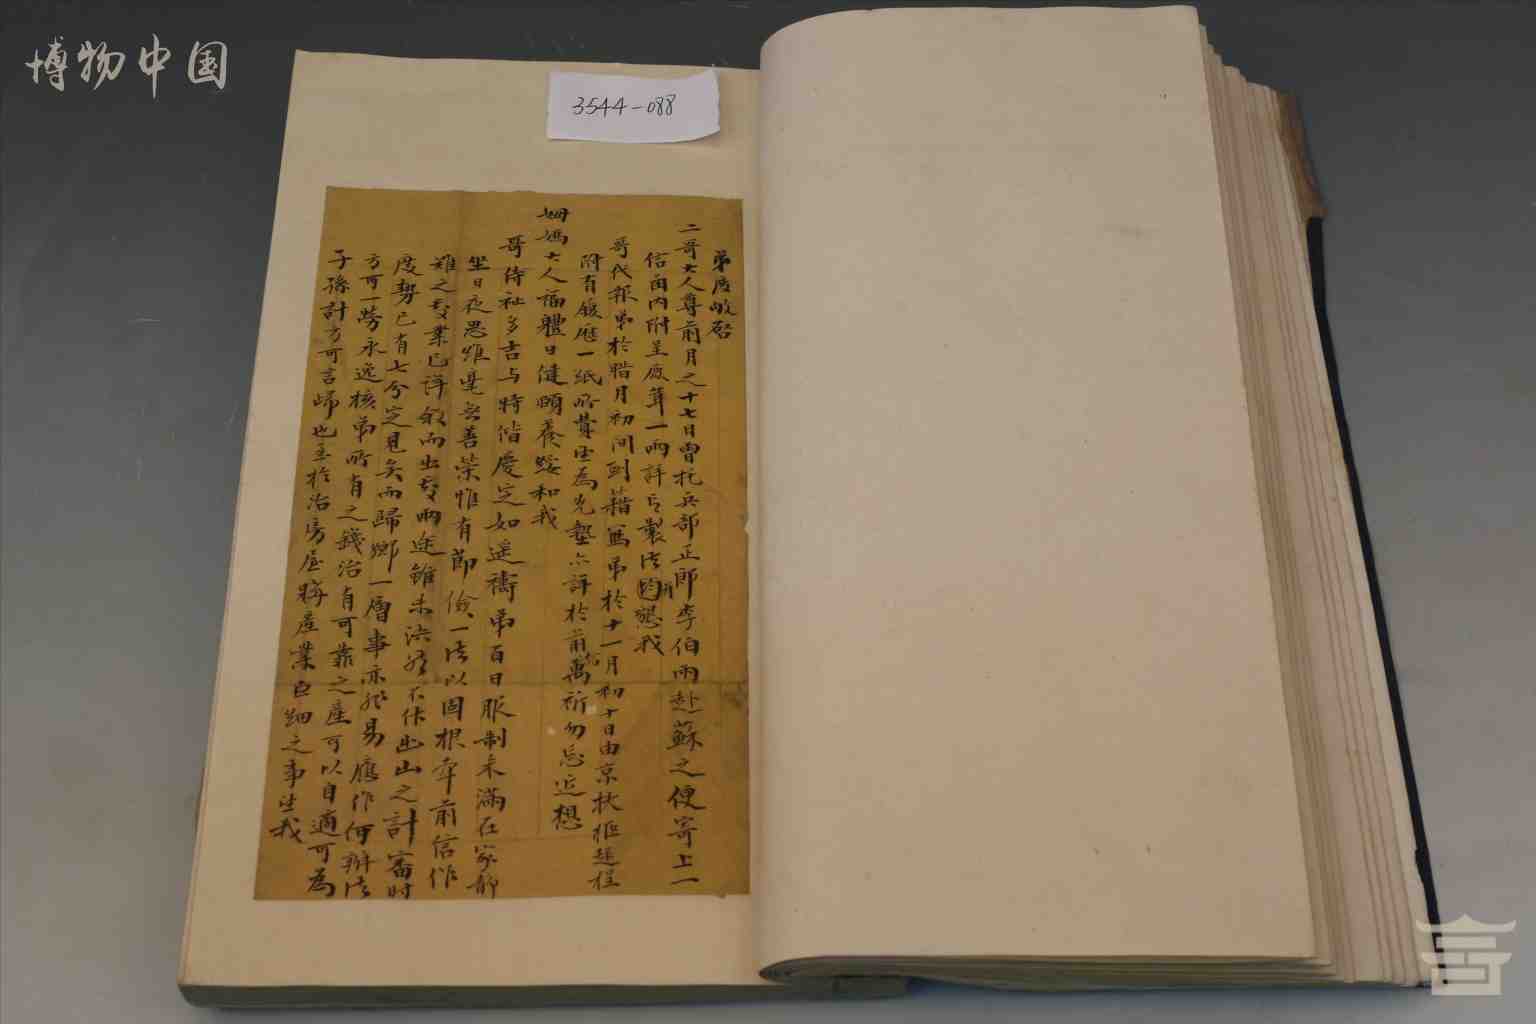 博物中国
3544-088
弟度敬啓
二哥大人尊前月之十七日曾托兵部正郎李伯雨赴蘇之便寄上一
信函内附呈廠茸一兩詳言製法均懇我
哥代報弟於腊月初间到籍為弟於十一月初十日由京扶柩起程
附有履歷一紙所費望為先墊亦詳於前萬祈勿忘近想
姻媽大人福體日健頤養綏和我
哥侍祉多吉与時偕慶定如遥禱弟百日服制未滿在家静
坐日夜思維毫無善策惟有節儉一法以固根本前信作
難之專業已詳敘而出專兩途雖未決不作出山之計審時
度勢已有七分定見矣而歸鄉一層事亦非易應作何辦法
方可一勞永逸核弟所有之錢治有可靠之產可以自適可為
子孫計方可言歸也至於治房屋購產業巨細之事望我